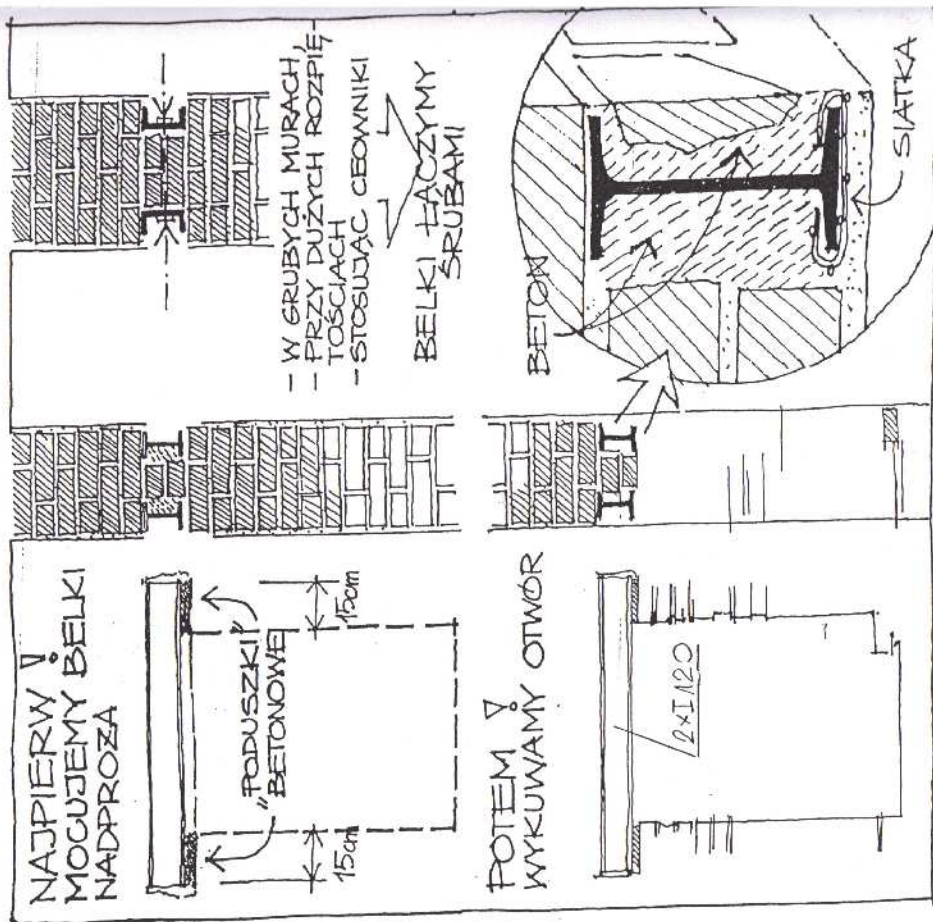 NAJPIERW!
MOCUJEMY BELKI
NADPROŻA
15cm
"PODUSZKI"
BETONOWE
15cm
- W GRUBYCH MURACH,
- PRZY DUŻYCH ROZPIĘ-
TOŚCIACH
- STOSUJĄC CEOWNIKI
BELKI ŁĄCZYMY
ŚRUBAMI
POTEM!
WYKUWAMY OTWÓR
2xI120
BETON
SIATKA